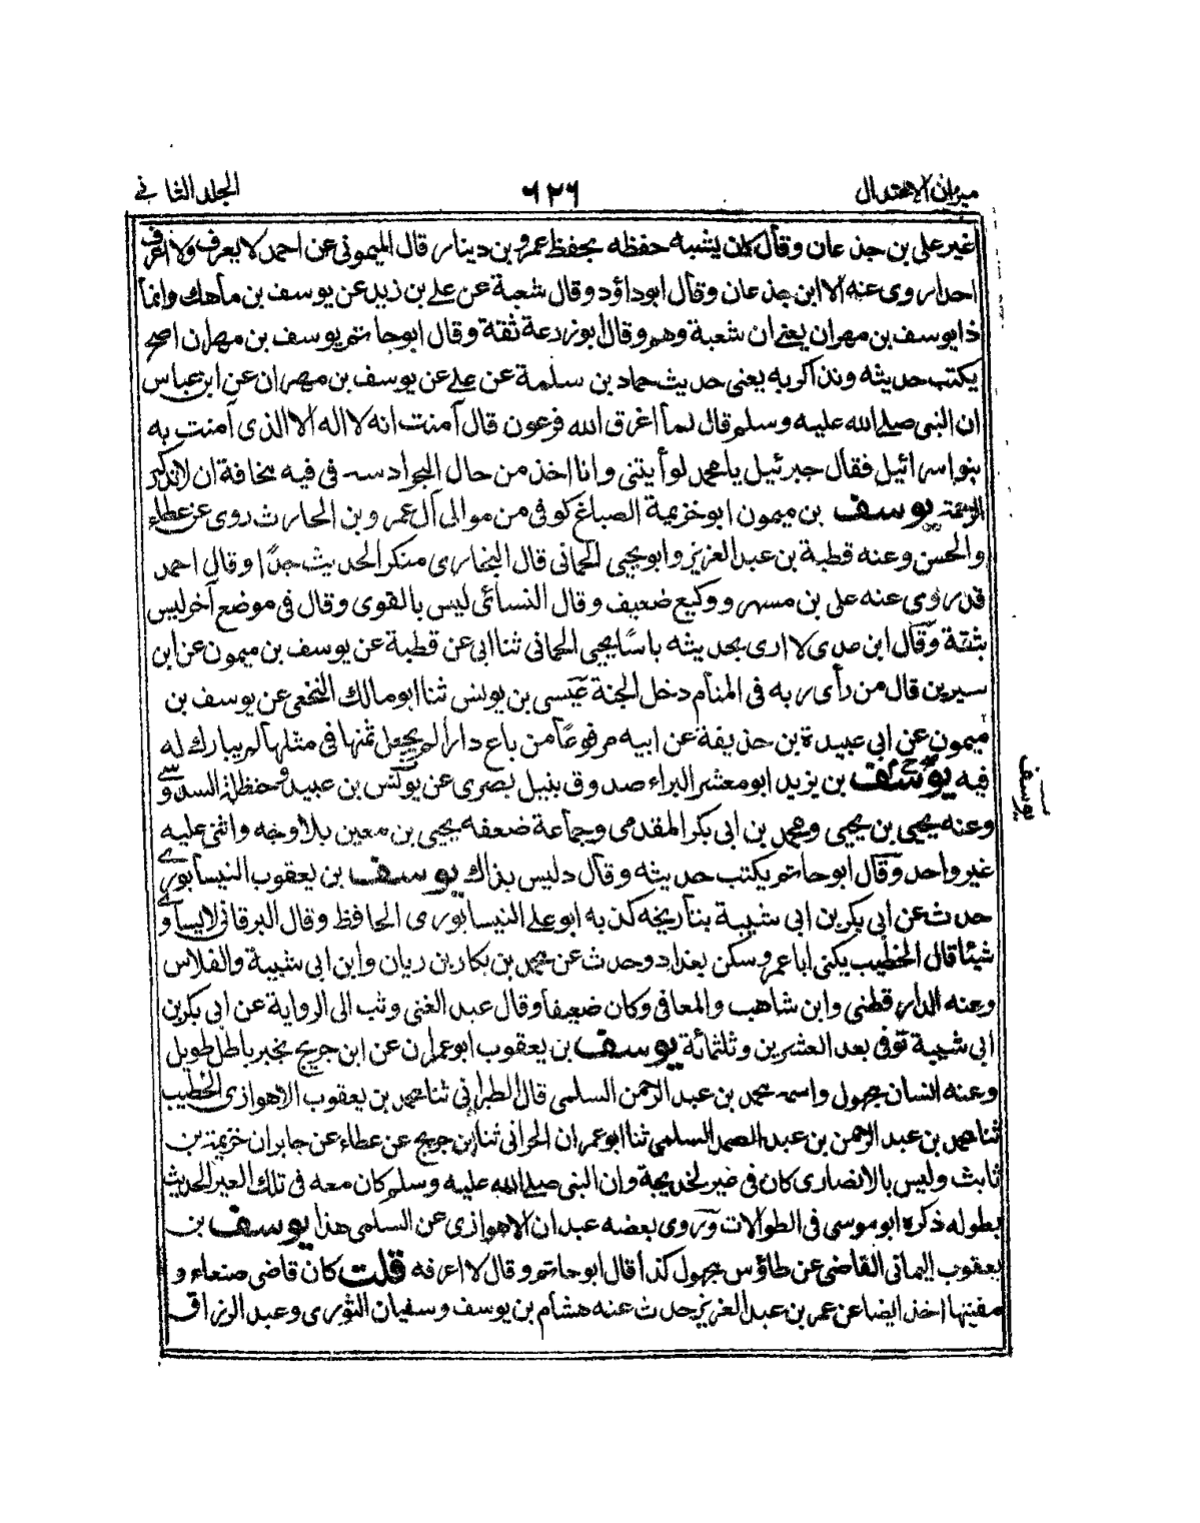 ميزان الاعتدال
٦٢٦
الجلد الثاني
غير علي بن جذعان وقال كان يشبه حفظه بحفظ عمرو بن دينار قال الميموني عن احمد لا يعرف ولا اعرف
احدا روى عنه الا ابن جذعان وقال ابو داؤد وقال شعبة عن علي بن زيد عن يوسف بن ماهك وانما
ذا يوسف بن مهران يعني ان شعبة وهم وقال ابو زرعة ثقة وقال ابو حاتم يوسف بن مهران اصح
يكتب حديثه ويذاكر به يعني حديث حماد بن سلمة عن علي عن يوسف بن مهران عن ابن عباس
ان النبي صلى الله عليه وسلم قال لما اغرق الله فرعون قال آمنت انه لا اله الا الذى آمنت به
بنو اسرائيل فقال جبرئيل يا محمد لو رأيتنى وانا اخذ من حال البحر ادسه فى فيه مخافة ان لا تدركه
الرحمة يوسف بن ميمون ابو خزيمة الصباغ كوفى من موالى آل عمرو بن الحارث روى عن عطاء
والحسن وعنه قطبة بن عبد العزيز وابو يحيى الحمانى قال البخارى منكر الحديث جدًا وقال احمد
قد روى عنه على بن مسهر ووكيع ضعيف وقال النسائى ليس بالقوى وقال فى موضع آخر ليس
بثقة وقال ابن عدى لا ارى بحديثه باسًا يحيى الحمانى ثنا ابى عن قطبة عن يوسف بن ميمون عن ابن
سيرين قال من رأى ربه فى المنام دخل الجنة عيسى بن يونس ثنا ابو مالك النخعى عن يوسف بن
ميمون عن ابي عبيدة بن حذيفة عن ابيه مرفوعًا من باع دارا لم يجعل ثمنها فى مثلها لم يبارك له
فيه يوسف بن يزيد ابو معشر البراء صدوق نبيل بصرى عن يونس بن عبيد وحنظلة السدوسي
وعنه يحيى بن يحيى ومحمد بن ابى بكر المقدمى وجماعة ضعفه يحيى بن معين بلا وجه واثنى عليه
غير واحد وقال ابو حاتم يكتب حديثه وقال د ليس بذاك يوسف بن يعقوب النيسابوري
حدث عن ابي بكر بن ابى شيبة بتأريخه كذبه ابو علي النيسابورى الحافظ وقال البرقاني لا يساوي
شيئا قال الخطيب يكنى ابا عمرو سكن بغداد وحدث عن محمد بن بكار بن ريان وابن ابى شيبة والفلاس
وعنه الدارقطنى وابن شاهين والمعافى وكان ضعيفا وقال عبد الغنى وثب الى الرواية عن ابى بكر بن
ابى شيبة توفى بعد العشرين وثلثمائة يوسف بن يعقوب ابو عمران عن ابن جريج بخبر باطل طويل
وعنه انسان مجهول واسمه محمد بن عبد الرحمن السلمى قال الطبراني ثنا محمد بن يعقوب الاهوازى الخطيب
ثنا محمد بن عبد الرحمن بن عبد الصمد السلمى ثنا ابو عمران الحرانى ثنا ابن جريج عن عطاء عن جابر ان خزيمة بن
ثابت وليس بالانصارى كان فى عير لخديجة وان النبى صلى الله عليه وسلم كان معه فى تلك العير الحديث
بطوله ذكره ابو موسى فى الطوالات وروى بعضه عبدان الاهوازى عن السلمى هذا يوسف بن
يعقوب اليمانى القاضى عن طاؤس مجهول كذا قال ابو حاتم وقال لا اعرفه قلت كان قاضى صنعاء و
مفتيها اخذ ايضا عن عمر بن عبد العزيز حدث عنه هشام بن يوسف وسفيان الثورى وعبد الرزاق
يوسف